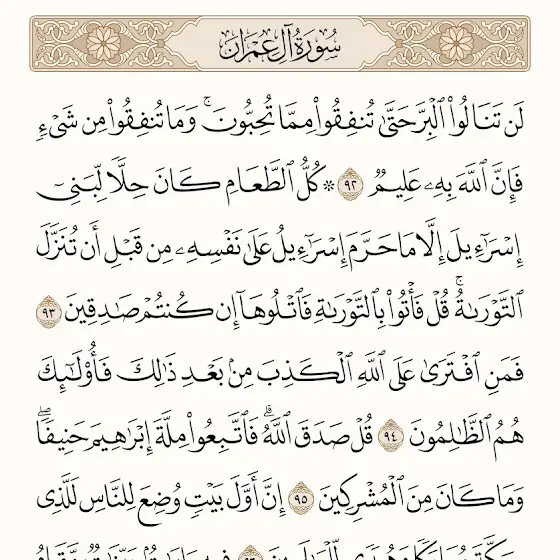 سُورَةُ آلِ عِمْرَانَ
لَن تَنَالُوا۟ ٱلْبِرَّ حَتَّىٰ تُنفِقُوا۟ مِمَّا تُحِبُّونَ ۚ وَمَا تُنفِقُوا۟ مِن شَىْءٍ
فَإِنَّ ٱللَّهَ بِهِۦ عَلِيمٌ ٩٢ ۞ كُلُّ ٱلطَّعَامِ كَانَ حِلًّا لِّبَنِىٓ
إِسْرَٰٓءِيلَ إِلَّا مَا حَرَّمَ إِسْرَٰٓءِيلُ عَلَىٰ نَفْسِهِۦ مِن قَبْلِ أَن تُنَزَّلَ
ٱلتَّوْرَىٰةُ ۗ قُلْ فَأْتُوا۟ بِٱلتَّوْرَىٰةِ فَٱتْلُوهَآ إِن كُنتُمْ صَٰدِقِينَ ٩٣
فَمَنِ ٱفْتَرَىٰ عَلَى ٱللَّهِ ٱلْكَذِبَ مِنۢ بَعْدِ ذَٰلِكَ فَأُو۟لَٰٓئِكَ
هُمُ ٱلظَّٰلِمُونَ ٩٤ قُلْ صَدَقَ ٱللَّهُ ۗ فَٱتَّبِعُوا۟ مِلَّةَ إِبْرَٰهِيمَ حَنِيفًا ۖ
وَمَا كَانَ مِنَ ٱلْمُشْرِكِينَ ٩٥ إِنَّ أَوَّلَ بَيْتٍ وُضِعَ لِلنَّاسِ لَلَّذِى